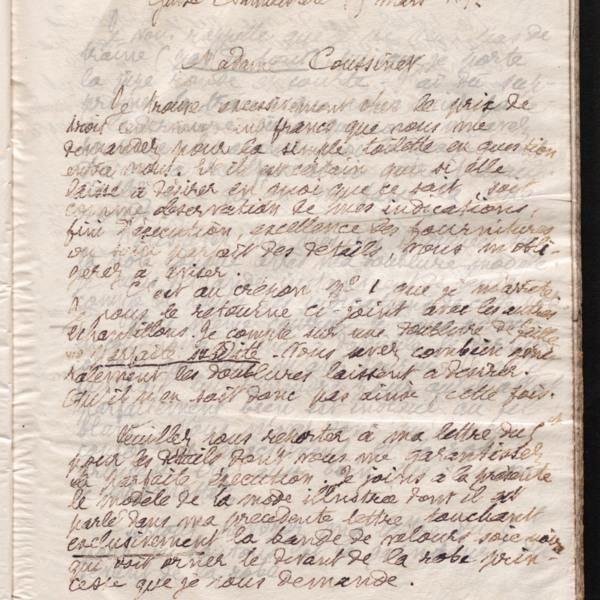 mars
Madame Coussinet
Je trouve excessivement cher le prix de
trois cent francs que vous me
demandez pour la simple toilette en question
entre nous. Et il est certain que si elle
laisse à désirer en quoi que ce soit, soit
comme observation de mes indications,
fini d'exécution, excellence des fournitures
ou soin parfait des détails vous m'obli-
gerez à
C'est au crépon n° 1 que je m'arrête,
je vous le retourne ci-joint avec les autres
échantillons. Je compte sur une doublure de
parfaite solidité. Vous savez combien géné-
ralement les doublures laissent à désirer.
Qu'il n'en soit donc pas ainsi cette fois.
Veuillez vous reporter à ma lettre du
pour les détails dont vous me garantissez
la parfaite exécution. Je joins à la présente
le modèle de la mode illustrée dont il est
parlé dans ma précédente lettre, touchant
exclusivement la bande de velours soie noir
qui doit orner le devant de la robe prin-
cesse que je vous demande.